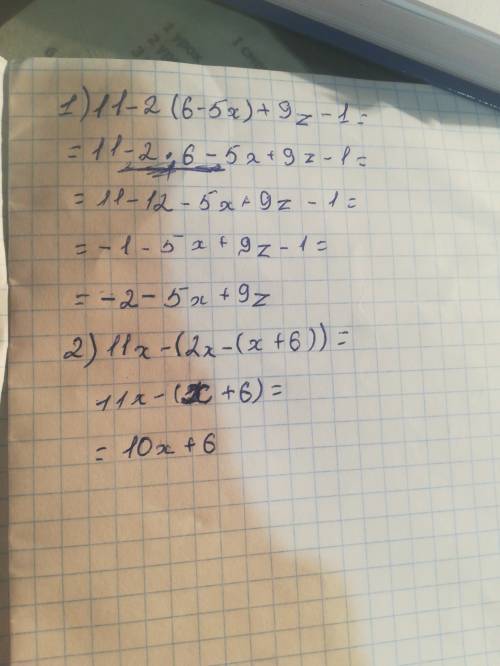 1) 11-2(6-5x)+9z-1=
=11-2•6-5x+9z-1=
=11-12-5x+9z-1=
=-1-5x+9z-1=
=-2-5x+9z
2) 11x-(2x-(x+6))=
11x-(x+6)=
=10x+6